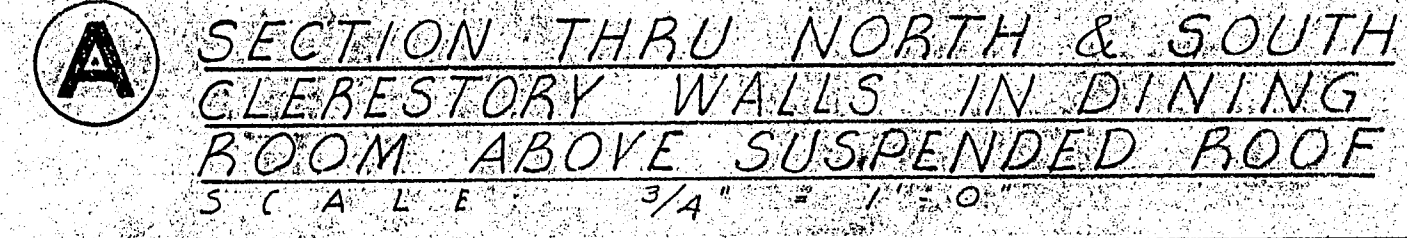 A SECTION THRU NORTH & SOUTH
CLERESTORY WALLS IN DINING
ROOM ABOVE SUSPENDED ROOF
SCALE: 3/4" = 1'-0"